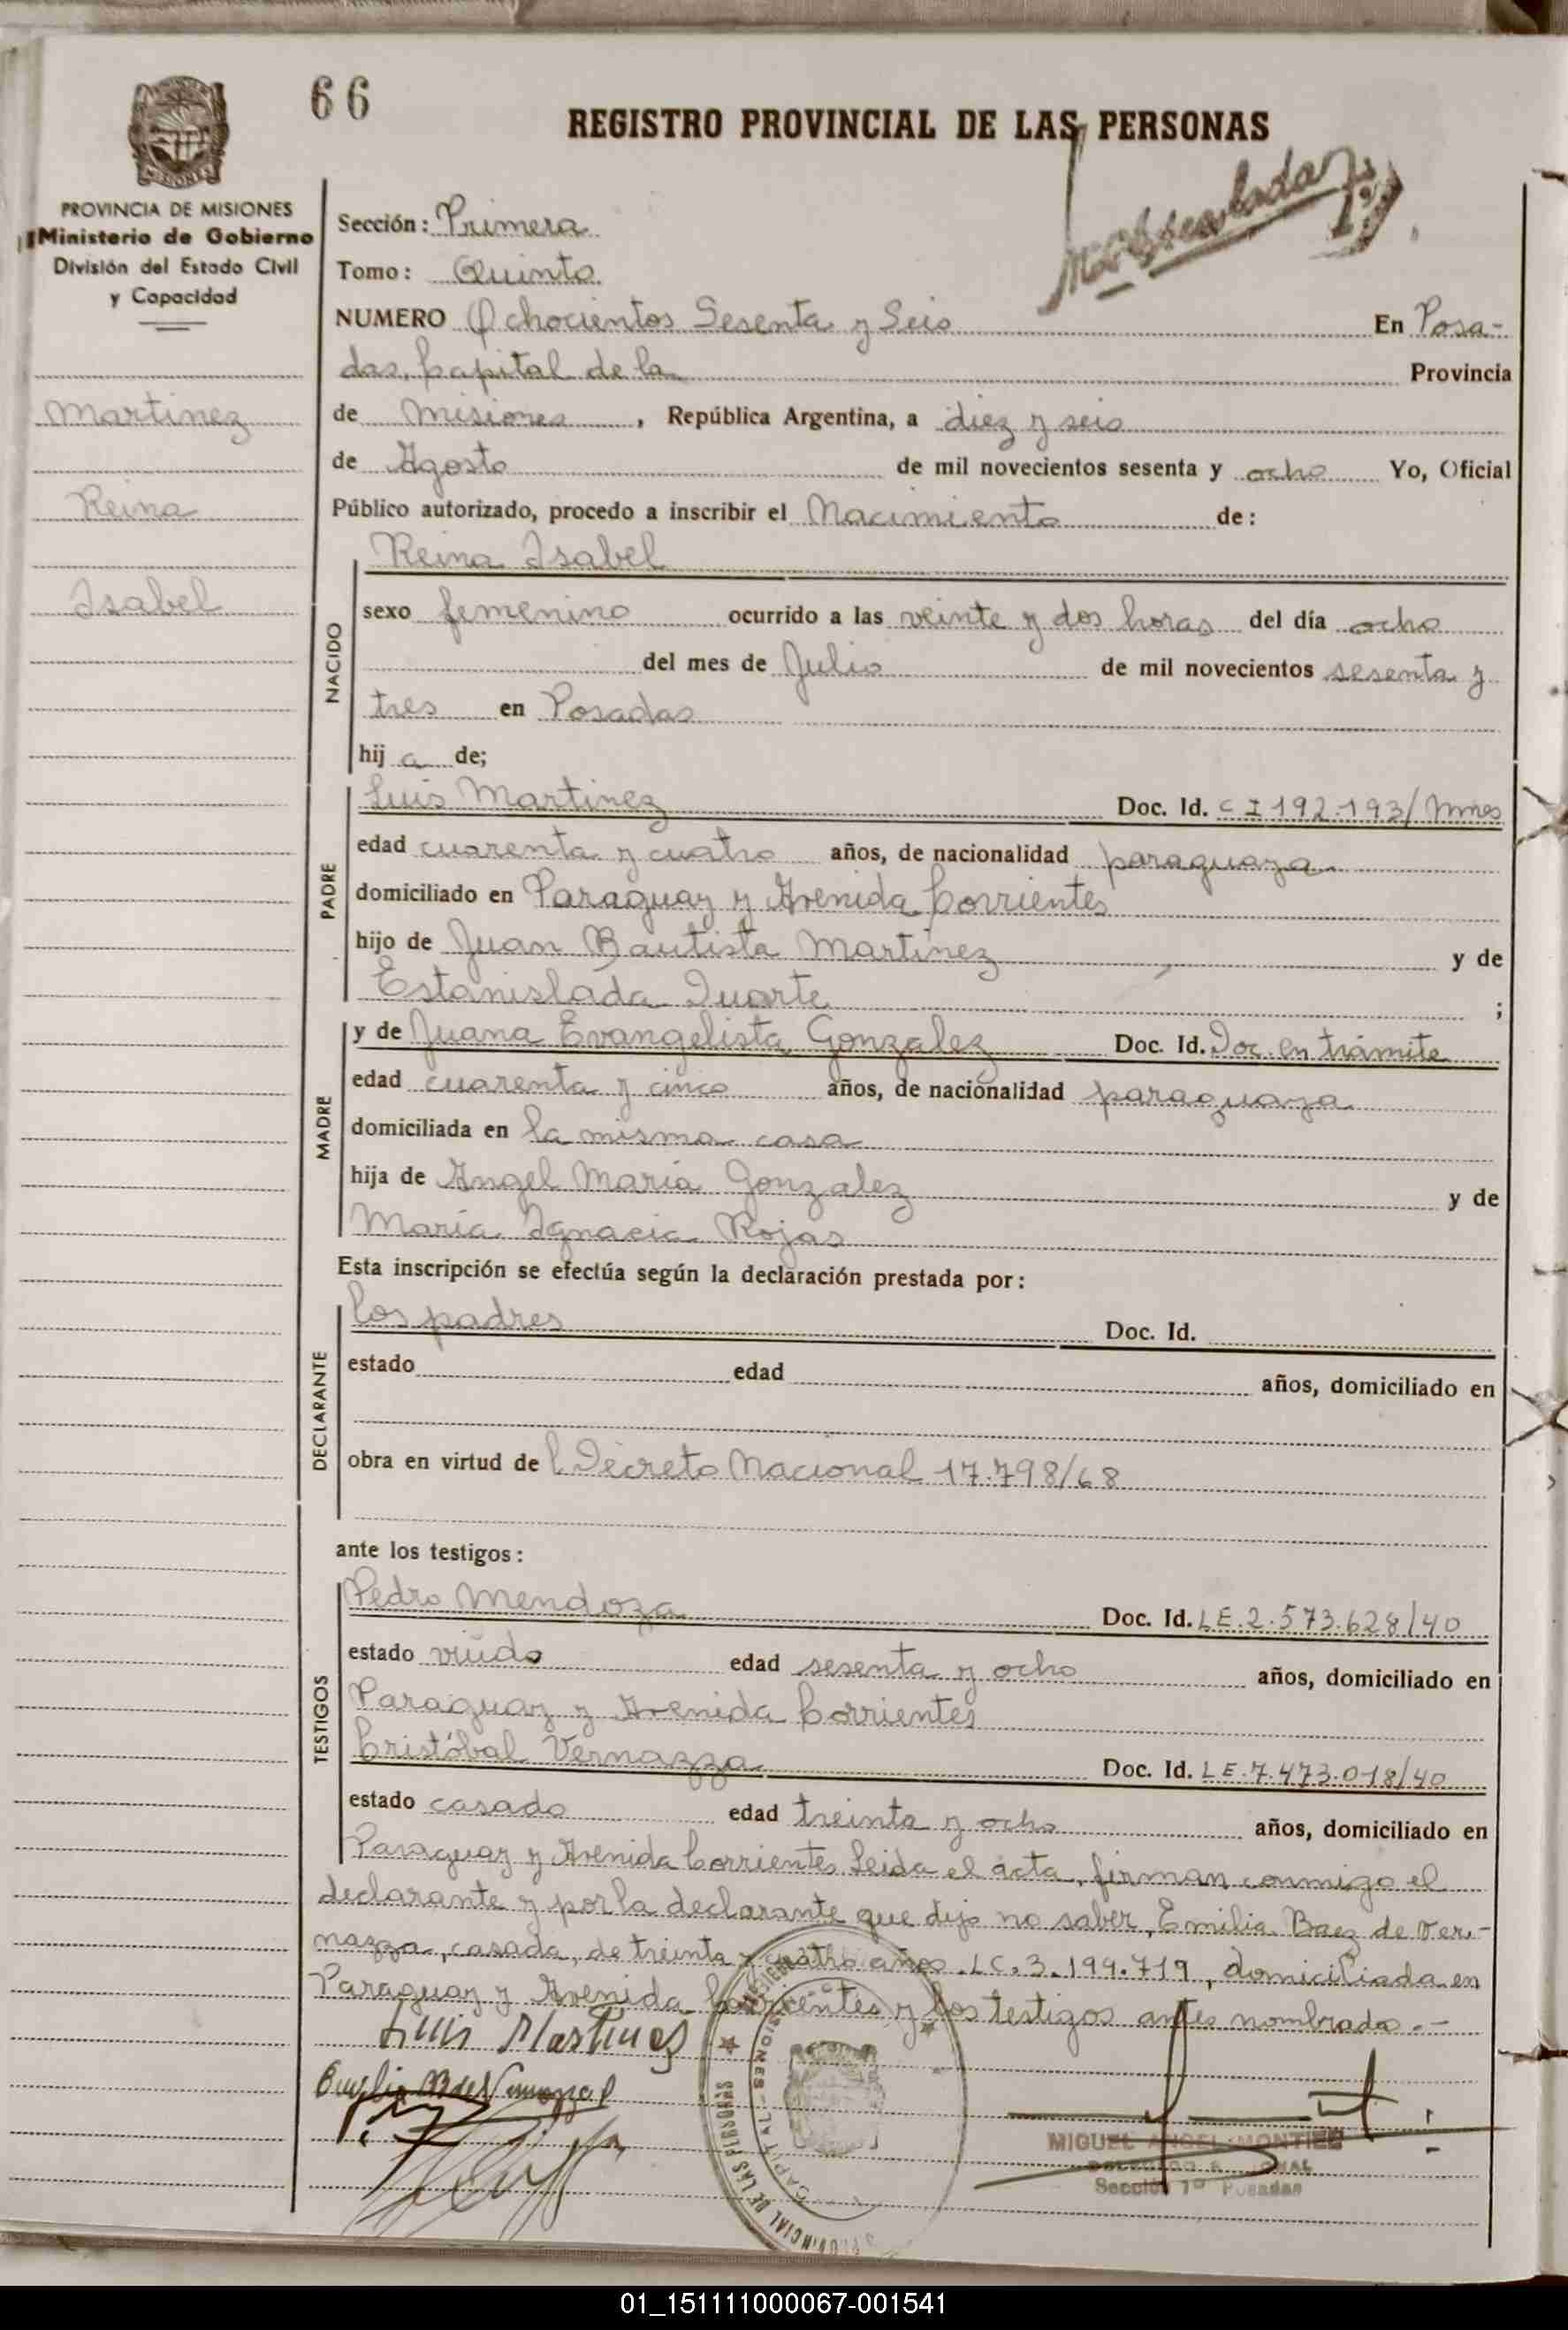 66
REGISTRO PROVINCIAL DE LAS PERSONAS
PROVINCIA DE MISIONES
Ministerio de Gobierno
División del Estado Civil
y Capacidad
Martinez
Reina
Isabel
Sección: Primera
Tomo: Quinto
NUMERO Ochocientos Sesenta y Seis En Posa-
das, Capital de la Provincia
de Misiones, República Argentina, a diez y seis
de Agosto de mil novecientos sesenta y ocho Yo, Oficial
Público autorizado, procedo a inscribir el Nacimiento de:
Reina Isabel
NACIDO
sexo femenino ocurrido a las veinte y dos horas del día ocho
del mes de Julio de mil novecientos sesenta y
tres en Posadas
hij a de;
PADRE
Luis Martinez Doc. Id. C I 192.193/Mnes
edad cuarenta y cuatro años, de nacionalidad paraguaya
domiciliado en Paraguay y Avenida Corrientes
hijo de Juan Bautista Martinez y de
Estanislada Duarte ;
MADRE
y de Juana Evangelista Gonzalez Doc. Id. Doc. en trámite
edad cuarenta y cinco años, de nacionalidad paraguaya
domiciliada en la misma casa
hija de Angel María Gonzalez y de
María Ignacia Rojas
Esta inscripción se efectúa según la declaración prestada por:
DECLARANTE
los padres Doc. Id.
estado edad años, domiciliado en
obra en virtud de l Decreto Nacional 17.798/68
ante los testigos:
TESTIGOS
Pedro Mendoza Doc. Id. LE.2.573.628/40
estado viudo edad sesenta y ocho años, domiciliado en
Paraguay y Avenida Corrientes
Cristóbal Vernazza Doc. Id. LE.7.473.018/40
estado casado edad treinta y ocho años, domiciliado en
Paraguay y Avenida Corrientes Leida el acta, firman conmigo el
declarante y por la declarante que dijo no saber, Emilia Baez de Ver-
nazza, casada, de treinta y cuatro años. LC.3.199.719, domiciliada en
Paraguay y Avenida Corrientes y los testigos antes nombrado.-
Luis Martinez
MIGUEL ANGEL MONTIEL
Sección 1º Posadas
CAPITAL - MISIONES
PROVINCIAL DE LAS PERSONAS
01_151111000067-001541